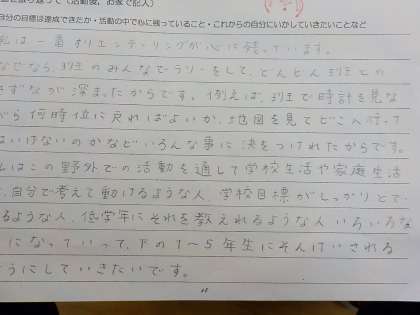 を振り返って（活動後，お家で記入）
自分の目標は達成できたか・活動の中で心に残っていること・これからの自分にいかしていきたいことなど
私は一番オリエンテーリングが心に残っています。
なぜなら、班のみんなでラリーをして、どんどん班との
きずなが深まったからです。例えば、班で時計を見な
がら何時位に戻ればよいか、地図を見てどこへ行って
はいけないのかなどいろんな事に決をつけれたからです。
私はこの野外での活動を通して学校生活や家庭生活
、自分で考えて動けるような人、学校目標がしっかりとで
るような人、低学年にそれを教えれるような人いろいろな
になっていって、下の1〜5年生にそんけいされる
ようにしていきたいです。